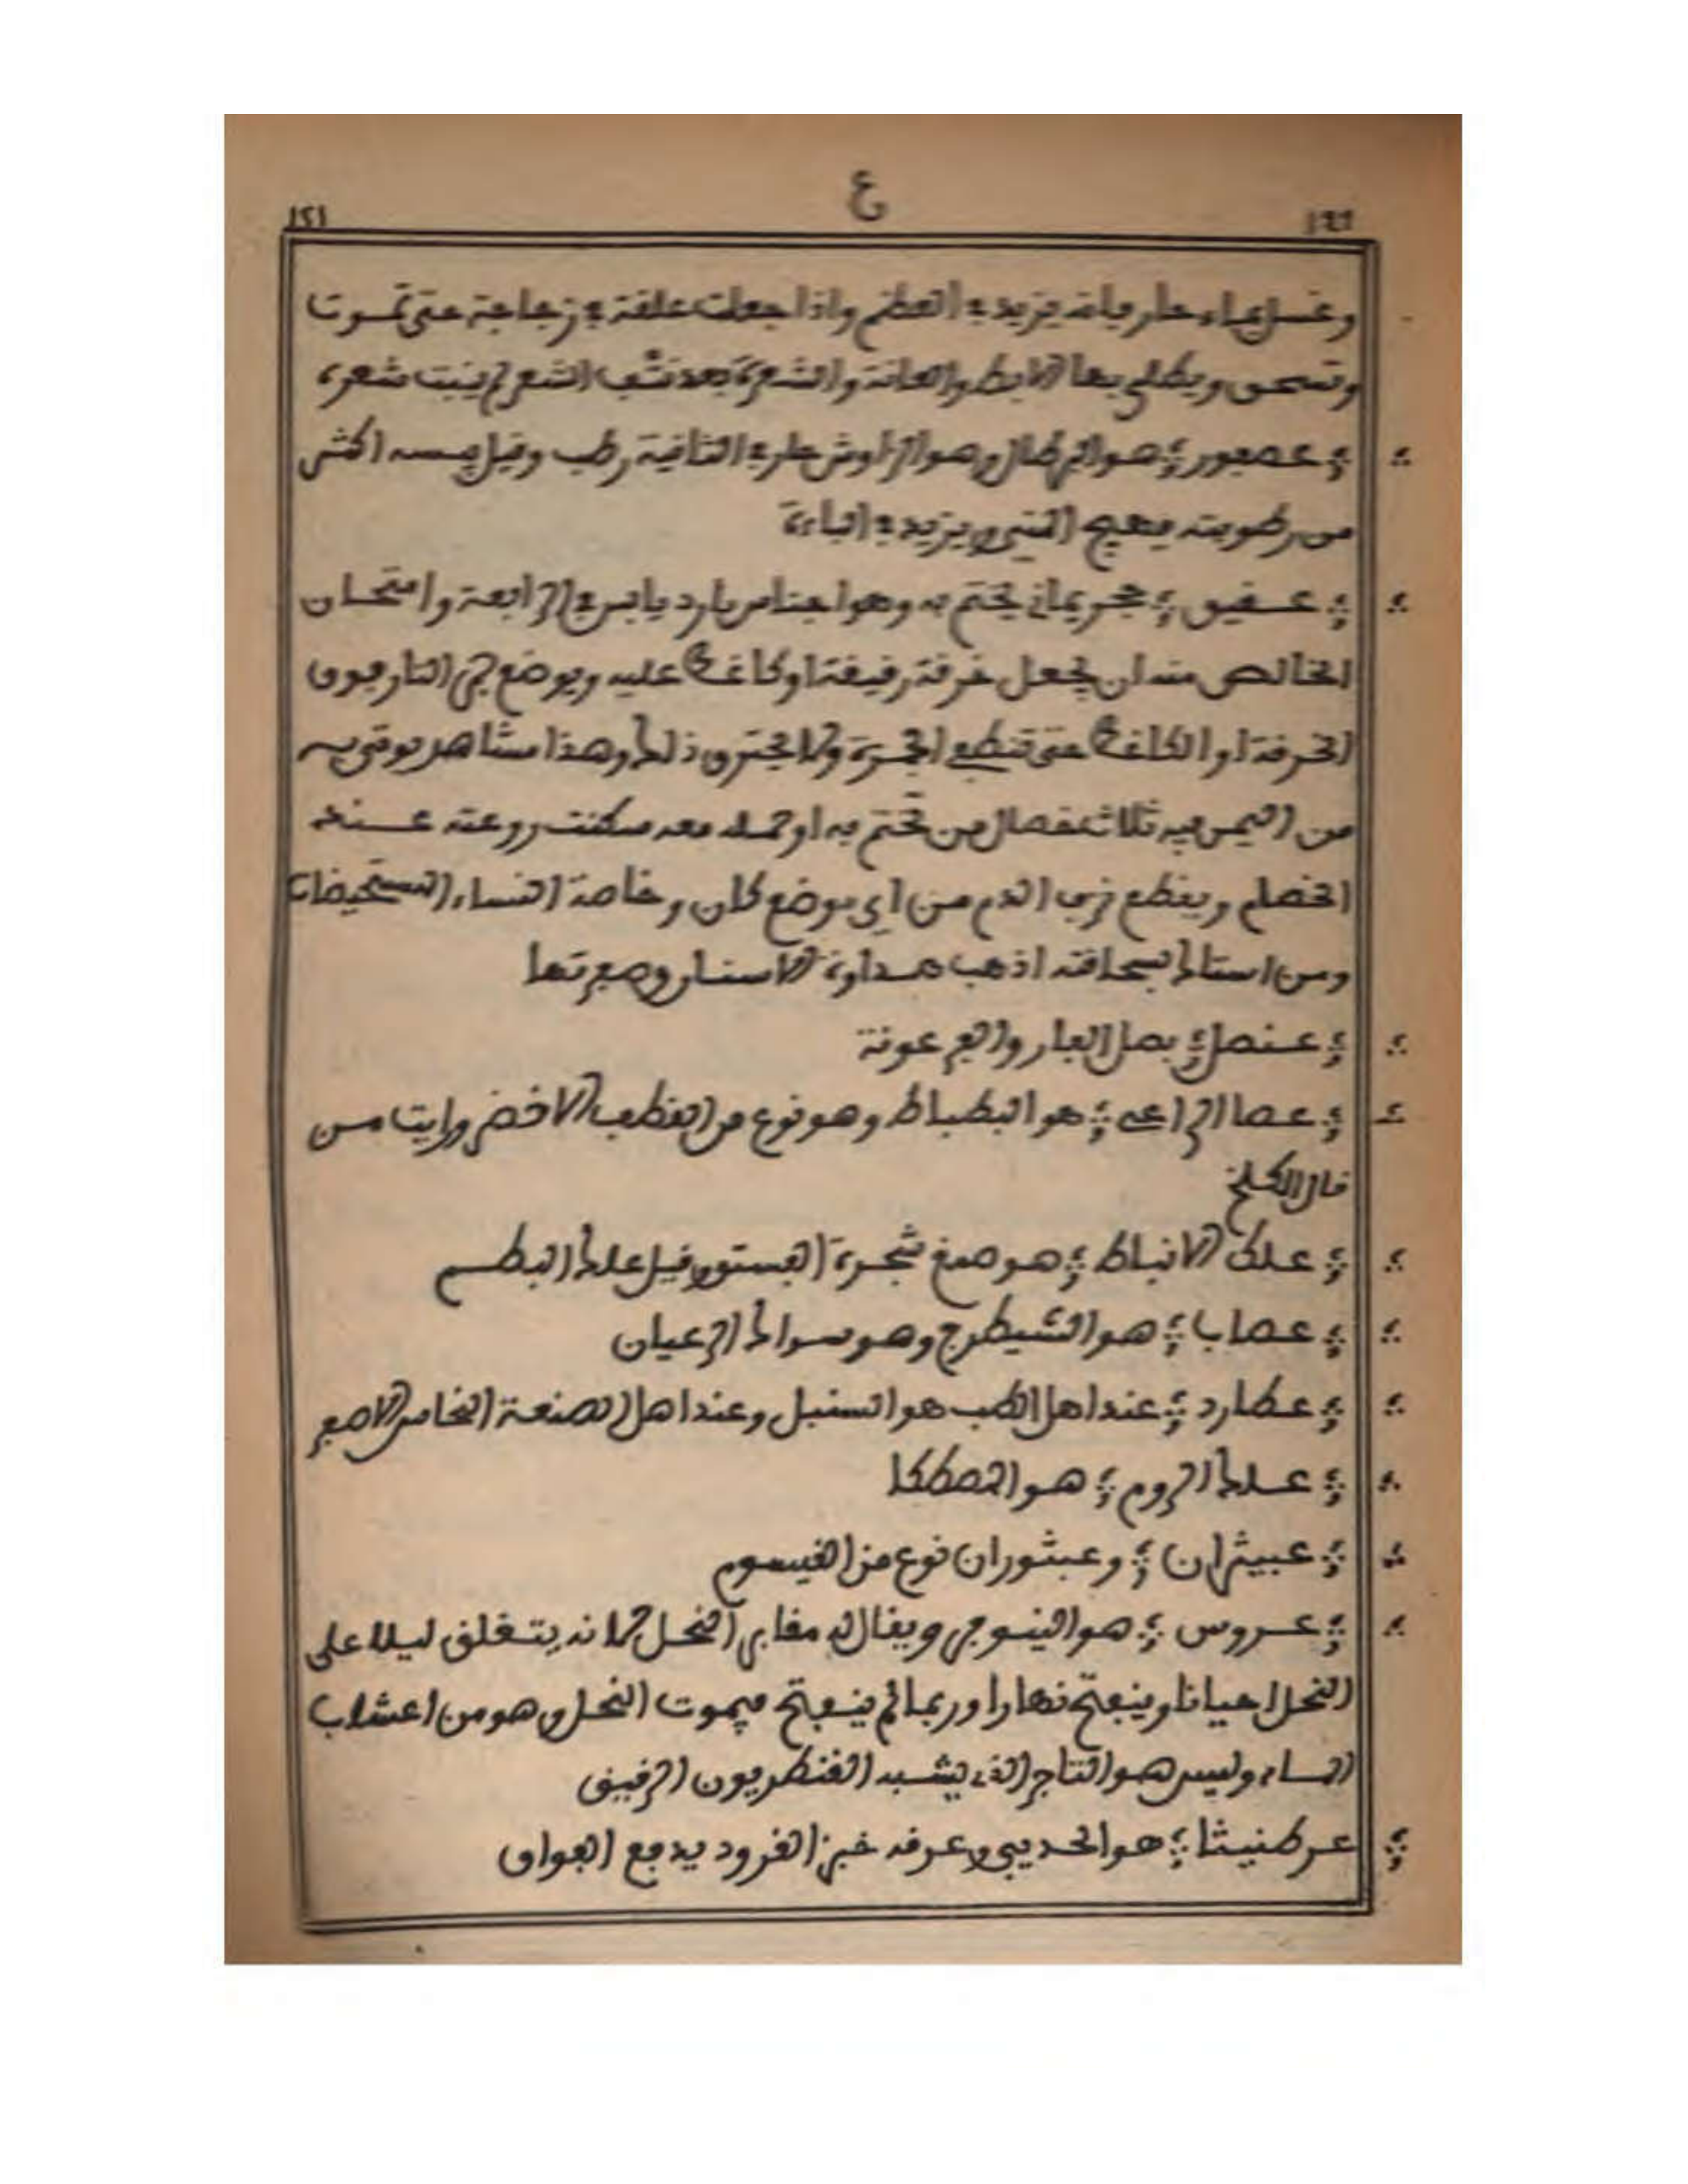 ع
١٢١
١٩٩
وغسل بماء حار فإنه يزيد في العظم واذا جعلت علقة في زجاجة حتى تموت
وتسحق ويطلى بها الابط والعانة والشعرة بعد نتف الشعر لم ينبت شعره
عصفور هو البرطال وهو الزاوش حار في الثانية رطب وقيل يبسه اكثر
من رطوبته يهيج المني ويزيد في الباءة
عقيق حجر يماني يختم به وهو اجناس بارد يابس في الرابعة وامتحان
الخالص منه ان يجعل خرقة رقيقة او كاغد عليه ويوضع جمر النار فوق
الخرقة او الكاغد حتى تنطفي الجمرة ولا يحترق ذلك وهذا مشاهد يوتى به
من اليمن فيه ثلاث خصال من تختم به او حمله معه سكنت روعته عند
الخصام ويقطع نزف الدم من اي موضع كان وخاصة النساء المستحيضات
ومن استاك بسحاقته اذهب صداوة الاسنان وصفرتها
عنصل بصل الفار والفرعونة
عصا الراعي هو البطباط وهو نوع من القطب الاخضر ورايت من
قال الكلخ
علك الانباط هو صمغ شجرة الفستق وقيل علك البطم
عصاب هو الشيطرج وهو سواك الرعيان
عطارد عند اهل الطب هو السنبل وعند اهل الصنعة النحاس الاصفر
علك الروم هو المصطكا
عبيثران وعبثوران نوع من القيسوم
عروس هو النينوفر ويقال له مقابر النحل لانه يتغلق ليلا على
النحل احيانا وينفتح نهارا وربما لم ينفتح فيموت النحل وهو من اعشاب
الماء وليس هو التاجر الذي يشبه القنطريون الرقيق
عرطنيثا هو الحديبي وعرقه خبز القرود يدفع الفواق